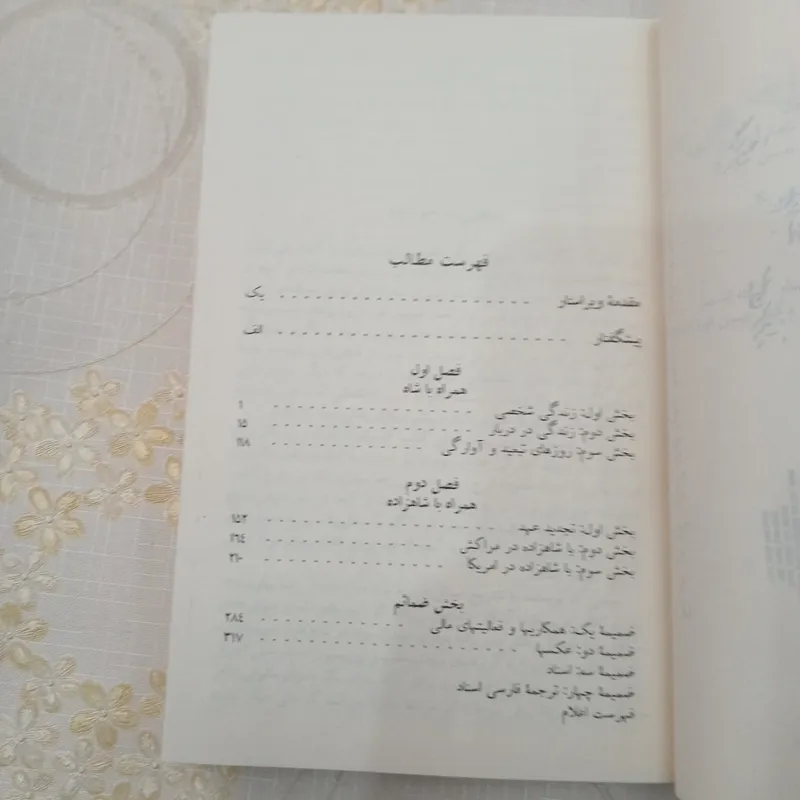 فهرست مطالب
مقدمهٔ ویراستار - - - - - - - - - - - - - - - - - - - - - یک
پیشگفتار - - - - - - - - - - - - - - - - - - - - - - - - الف
فصل اول
همراه با شاه
بخش اول: زندگی شخصی - - - - - - - - - - - - - - - - - ۱
بخش دوم: زندگی در دربار - - - - - - - - - - - - - - - - ۱۵
بخش سوم: روزهای تبعید و آوارگی - - - - - - - - - - - - - ۱۱۸
فصل دوم
همراه با شاهزاده
بخش اول: تجدید عهد - - - - - - - - - - - - - - - - - - - ۱۵۲
بخش دوم: با شاهزاده در مراکش - - - - - - - - - - - - - - ۱۶۴
بخش سوم: با شاهزاده در امریکا - - - - - - - - - - - - - - ۲۱۰
بخش ضمائم
ضمیمهٔ یک: همکاریها و فعالیتهای مالی - - - - - - - - - - - - ۲۸۴
ضمیمهٔ دو: عکسها - - - - - - - - - - - - - - - - - - - - - ۳۱۷
ضمیمهٔ سه: اسناد
ضمیمهٔ چهار: ترجمهٔ فارسی اسناد
فهرست اعلام